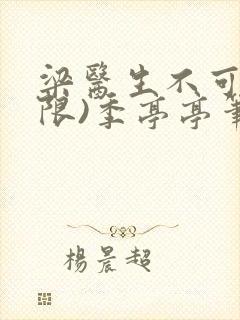 梁醫生不可
限)季亭亭筆
楊晨超